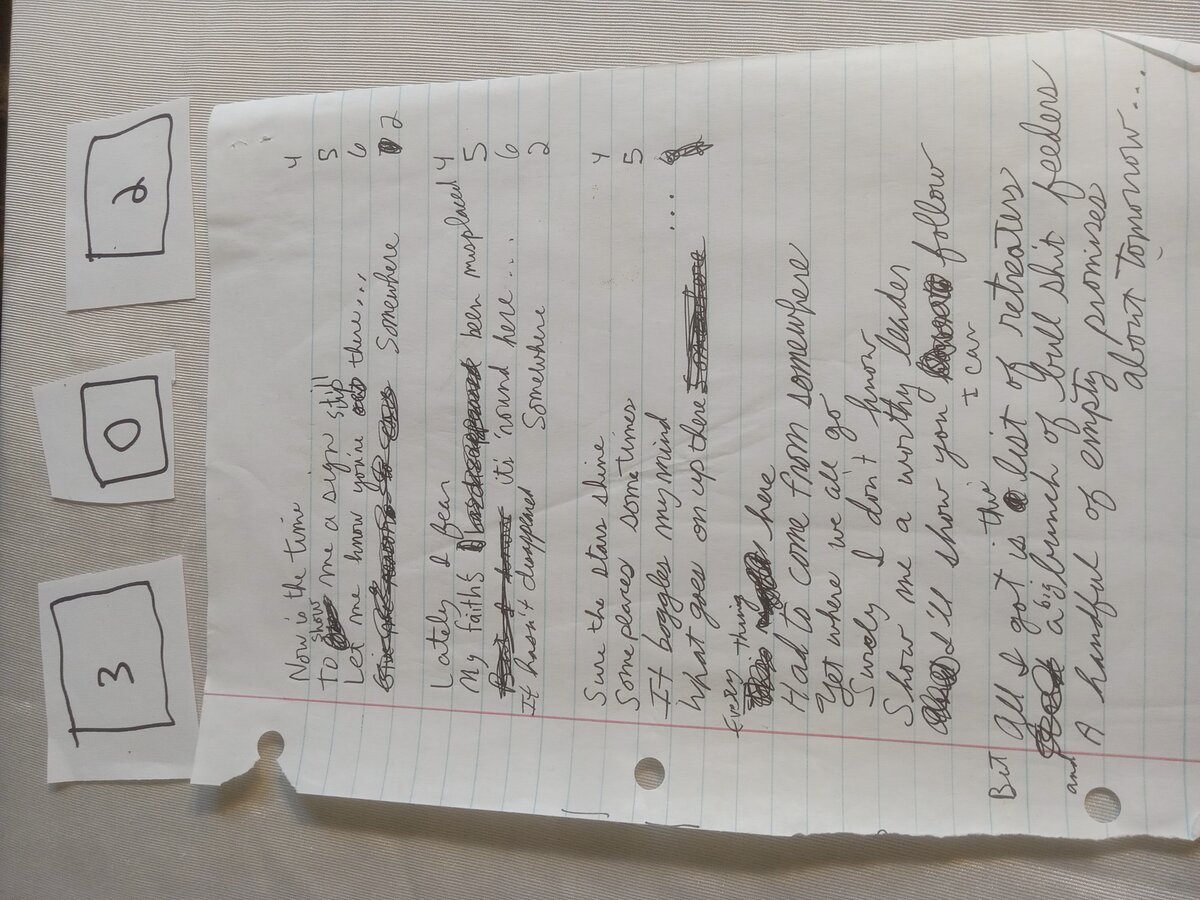 3 0 2
Now is the time 4
To show me a sign still 5
Let me know you're there... 6
Somewhere 2
Lately I fear 4
My faiths been misplaced 4
5
it's 'round here... 6
It hasn't disapeared Somewhere 2
Sure the stars shine 4
Some places sometimes 5
It boggles my mind
What goes on up there ...
Every thing here
Had to come from somewhere
Yet where we all go
Surely I don't know
Show me a worthy leader
I'll show you I can follow
But All I got is the list of retreaters
and a big bunch of bull shit feeders
A handful of empty promises
about Tomorrow...